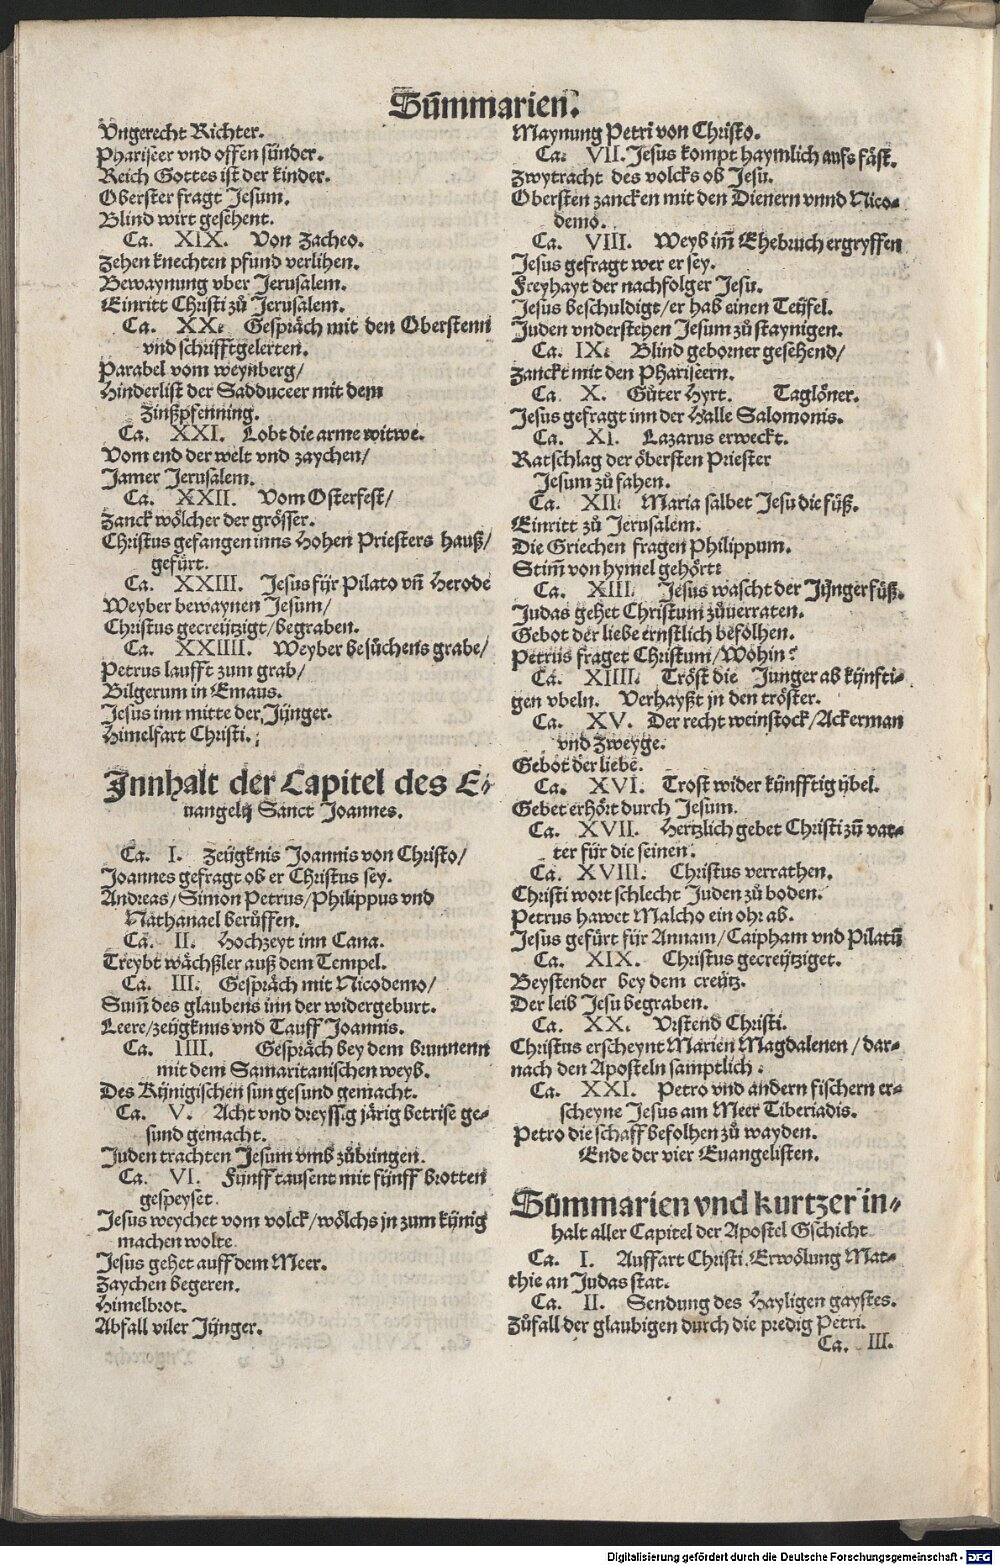 Sum̃marien.
Vngerecht Richter.
Phariseer vnd offen sünder.
Reich Gottes ist der kinder.
Oberster fragt Jesum.
Blind wirt gesehent.
Ca. XIX. Von Zacheo.
Zehen knechten pfund verlihen.
Bewaynung vber Jerusalem.
Einritt Christi zů Jerusalem.
Ca. XX. Gespräch mit den Oberstenn
vnd schrifftgelerten.
Parabel vom weynberg/
Hinderlist der Sadduceer mit dem
Zinßpfenning.
Ca. XXI. Lobt die arme witwe.
Vom end der welt vnd zaychen/
Jamer Jerusalem.
Ca. XXII. Vom Osterfest/
Zanck wölcher der grösser.
Christus gefangen inns Hohen Priesters hauß/
gefürt.
Ca. XXIII. Jesus für Pilato vñ Herode
Weyber bewaynen Jesum/
Christus gecreützigt/begraben.
Ca. XXIIII. Weyber besůchens grabe/
Petrus laufft zum grab/
Bilgerum in Emaus.
Jesus inn mitte der Jünger.
Himelfart Christi.
Innhalt der Capitel des E-
uangelij Sanct Joannes.
Ca. I. Zeügknis Joannis von Christo/
Joannes gefragt ob er Christus sey.
Andreas/Simon Petrus/Philippus vnd
Nathanael berůffen.
Ca. II. Hochzeyt inn Cana.
Treybt wächßler auß dem Tempel.
Ca. III. Gespräch mit Nicodemo/
Sum̃ des glaubens inn der widergeburt.
Leere/zeügknus vnd Tauff Joannis.
Ca. IIII. Gespräch bey dem brunnenn
mit dem Samaritanischen weyb.
Des Künigischen sun gesund gemacht.
Ca. V. Acht vnd dreyssig järig betrise ge-
sund gemacht.
Juden trachten Jesum vmb zůbringen.
Ca. VI. Fünff tausent mit fünff brotten
gespeyset.
Jesus weychet vom volck/wölchs jn zum künig
machen wolte.
Jesus gehet auff dem Meer.
Zaychen begeren.
Himelbrot.
Abfall viler Jünger.
Maynung Petri von Christo.
Ca. VII. Jesus kompt haymlich aufs fäst.
Zwytracht des volcks ob Jesu.
Obersten zancken mit den Dienern vnnd Nico-
demo.
Ca. VIII. Weyb im̃ Ehebruch ergryffen
Jesus gefragt wer er sey.
Freyhayt der nachfolger Jesu.
Jesus beschuldigt/er hab einen Teüfel.
Juden vnderstehen Jesum zů staynigen.
Ca. IX. Blind geborner gesehend/
Zanckt mit den Phariseern.
Ca. X. Gůter Hyrt. Taglöner.
Jesus gefragt inn der Halle Salomonis.
Ca. XI. Lazarus erweckt.
Ratschlag der öbersten Priester
Jesum zů fahen.
Ca. XII. Maria salbet Jesu die fůß.
Einritt zů Jerusalem.
Die Griechen fragen Philippum.
Stim̃ von hymel gehört.
Ca. XIII. Jesus wascht der Jünger füß.
Judas gehet Christum zůuerraten.
Gebot der liebe ernstlich befolhen.
Petrus fraget Christum/Wohin?
Ca. XIIII. Tröst die Junger ab künfti-
gen vbeln. Verhayßt jn den tröster.
Ca. XV. Der recht weinstock/Ackerman
vnd Zweyge.
Gebot der liebe.
Ca. XVI. Trost wider künfftig übel.
Gebet erhört durch Jesum.
Ca. XVII. Hertzlich gebet Christi zů vat-
ter für die seinen.
Ca. XVIII. Christus verrathen.
Christi wort schlecht Juden zů boden.
Petrus hawet Malcho ein ohr ab.
Jesus gefürt für Annam/Caipham vnd Pilatũ
Ca. XIX. Christus gecreütziget.
Beystender bey dem creütz.
Der leib Jesu begraben.
Ca. XX. Vrstend Christi.
Christus erscheynt Marien Magdalenen/dar-
nach den Aposteln samptlich.
Ca. XXI. Petro vnd andern fischern er-
scheyne Jesus am Meer Tiberiadis.
Petro die schaff befolhen zů wayden.
Ende der vier Euangelisten.
Summarien vnd kurtzer in-
halt aller Capitel der Apostel Gschicht
Ca. I. Auffart Christi. Erwölung Mat-
thie an Judas stat.
Ca. II. Sendung des Hayligen gaystes.
Zůfall der glaubigen durch die predig Petri.
Ca. III.
Digitalisierung gefördert durch die Deutsche Forschungsgemeinschaft - DFG